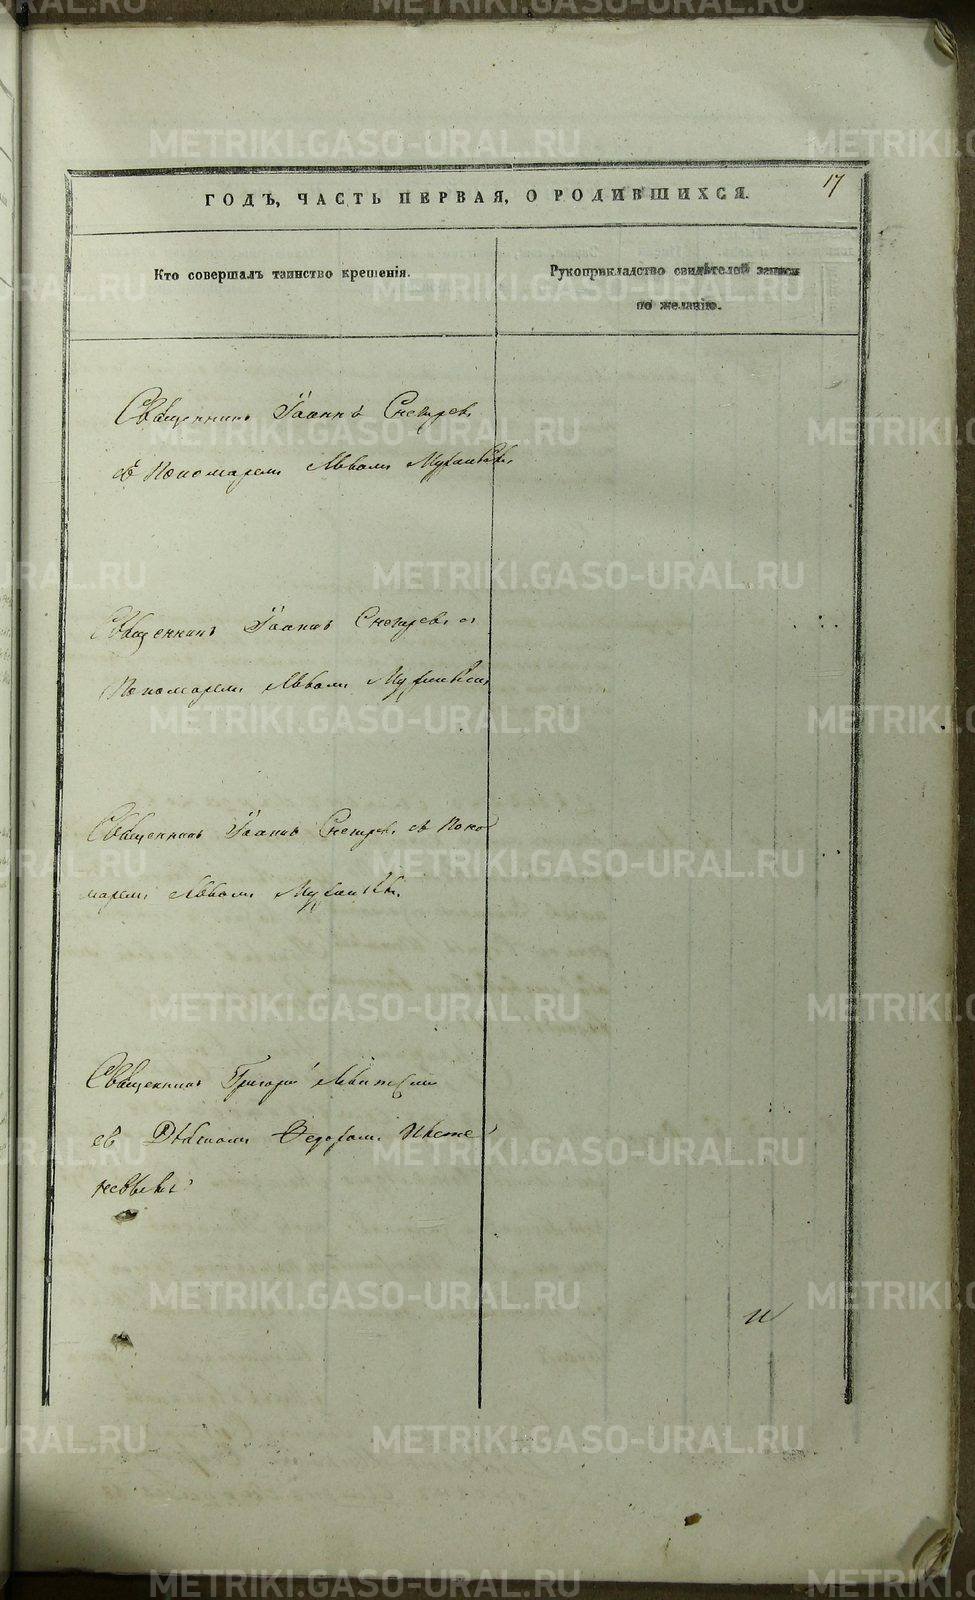 17
ГОДЪ, ЧАСТЬ ПЕРВАЯ, О РОДИВШИХСЯ.
Кто совершалъ таинство крещенія.
Рукоприкладство свидѣтелей записи
по желанію.
Священникъ Іоаннъ Снегирев
съ Пономаремъ Львомъ
Священникъ Іоаннъ Снегиревъ съ
Пономаремъ Львомъ
Священникъ Іоаннъ Снегирев съ Поно
маремъ Львомъ
Священникъ Григорій
съ Дьякомъ Федоромъ
и
METRIKI.GASO-URAL.RU